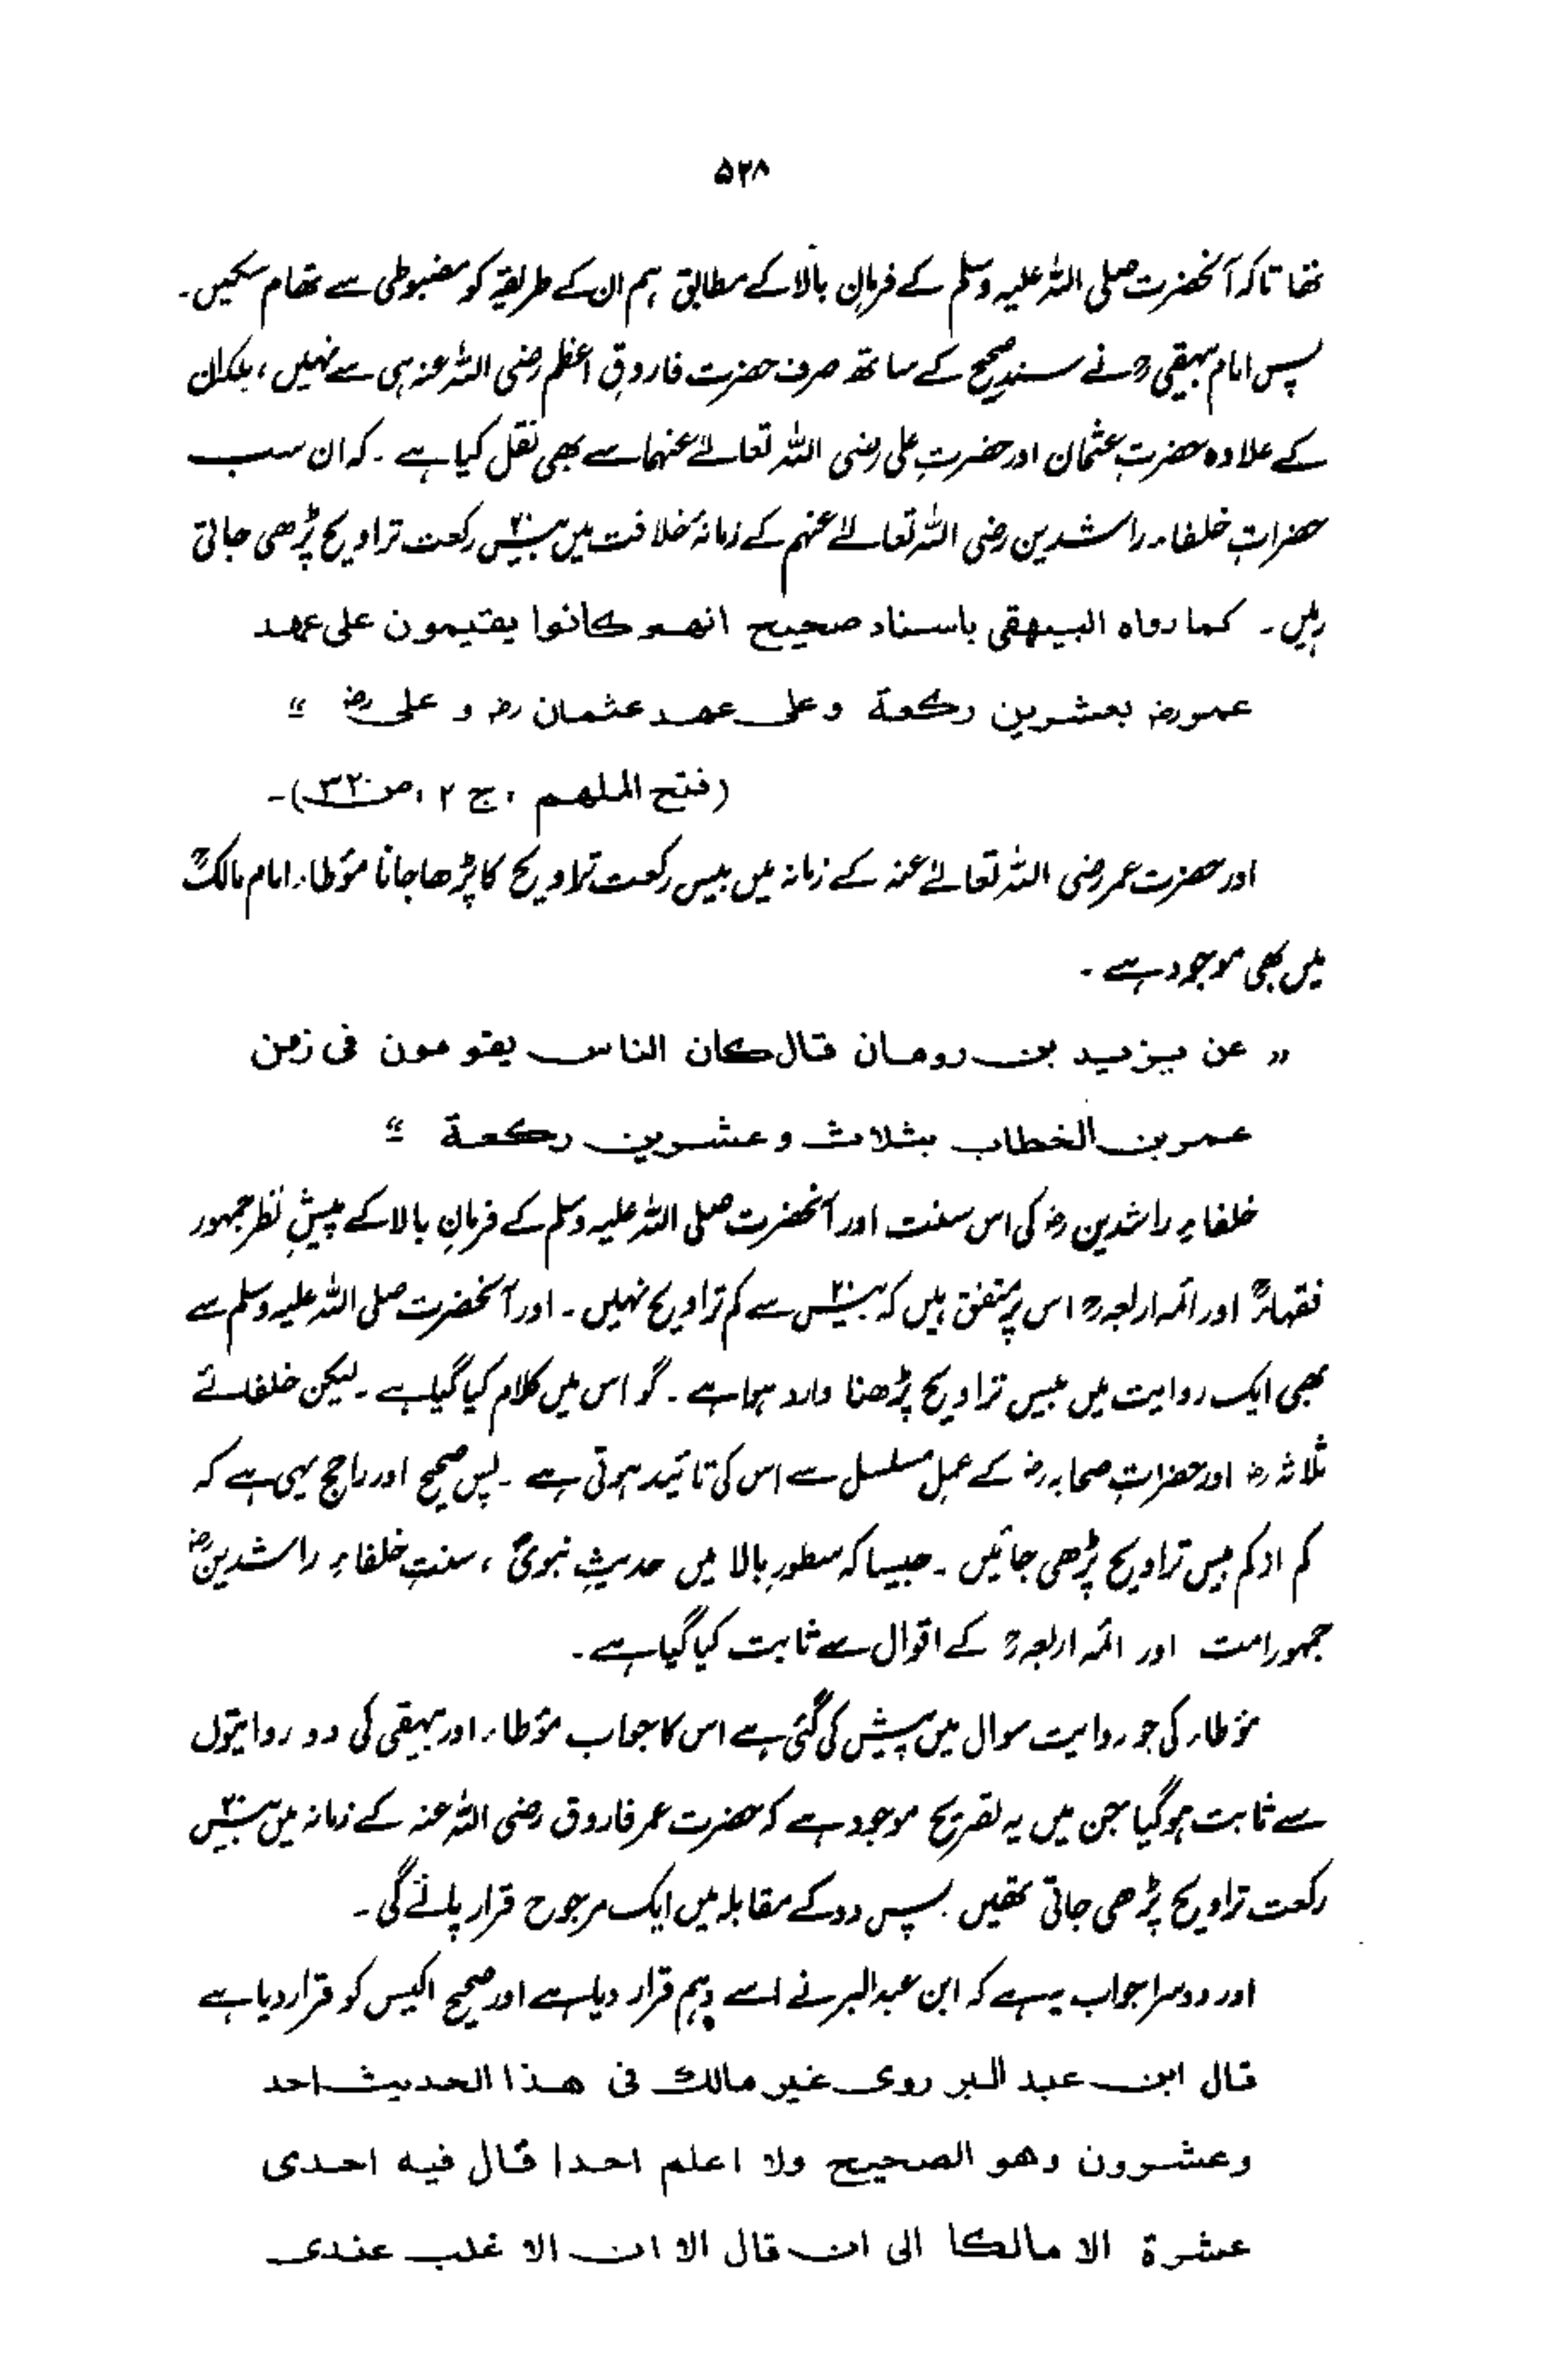 ۵۲۸
تھا تاکہ آنحضرت صلی اللہ علیہ وسلم کے فرمانِ بالا کے مطابق ہم ان کے طریقہ کو مضبوطی سے تھام سکیں۔
پس امام بیہقی رح نے سندِ صحیح کے ساتھ صرف حضرت فاروقِ اعظم رضی اللہ عنہ ہی سے نہیں، بلکہ ان
کے علاوہ حضرتِ عثمان اور حضرتِ علی رضی اللہ تعالےٰ عنہما سے بھی نقل کیا ہے ۔ کہ ان سب
حضراتِ خلفاء راشدین رضی اللہ تعالےٰ عنہم کے زمانۂ خلافت میں بیس۲۰ رکعت تراویح پڑھی جاتی
رہیں۔ کما رواہ البیہقی باسناد صحیح انھم کانوا یقیمون علی عھد
عمر رض بعشرین رکعة وعلی عھد عثمان رض و علی رض ‘‘
(فتح الملھم ، ج ۲ ، ص ۳۲۰)۔
اور حضرت عمر رضی اللہ تعالےٰ عنہ کے زمانہ میں بیس رکعت تراویح کا پڑھا جانا مؤطاء امام مالکؒ
میں بھی موجود ہے ۔
’’ عن یزید بن رومان قال کان الناس یقومون فی زمن
عمر بن الخطاب بثلاث وعشرین رکعة ‘‘
خلفاءِ راشدین رض کی اس سنت اور آنحضرت صلی اللہ علیہ وسلم کے فرمانِ بالا کے پیشِ نظر جمہور
فقہاءؒ اور ائمہ اربعہ رح اس پر متفق ہیں کہ بیس۲۰ سے کم تراویح نہیں ۔ اور آنحضرت صلی اللہ علیہ وسلم سے
بھی ایک روایت میں بیس تراویح پڑھنا وارد ہوا ہے ۔ گو اس میں کلام کیا گیا ہے ۔ لیکن خلفائے
ثلاثہ رض اور حضراتِ صحابہ رض کے عملِ مسلسل سے اس کی تائید ہوتی ہے ۔ پس صحیح اور راجح یہی ہے کہ
کم از کم بیس تراویح پڑھی جائیں ۔ جیسا کہ سطورِ بالا میں حدیثِ نبویؐ ، سنتِ خلفاءِ راشدینؓ
جمہور امت اور ائمہ اربعہ رح کے اقوال سے ثابت کیا گیا ہے ۔
مؤطاء کی جو روایت سوال میں پیش کی گئی ہے اس کا جواب مؤطاء اور بیہقی کی دو روایتوں
سے ثابت ہو گیا جن میں یہ تصریح موجود ہے کہ حضرت عمر فاروق رضی اللہ عنہ کے زمانہ میں بیس۲۰
رکعت تراویح پڑھی جاتی تھیں۔ پس دو کے مقابلہ میں ایک مرجوح قرار پائے گی ۔
اور دوسرا جواب یہ ہے کہ ابن عبدالبر نے اسے وہم قرار دیا ہے اور صحیح اکیس کو قرار دیا ہے
قال ابن عبد البر روی غیر مالک فی ھذا الحدیث احد
وعشرون وھو الصحیح ولا اعلم احدا قال فیه احدی
عشرة الا مالکا الی ان قال الا ان الا غلب عندی